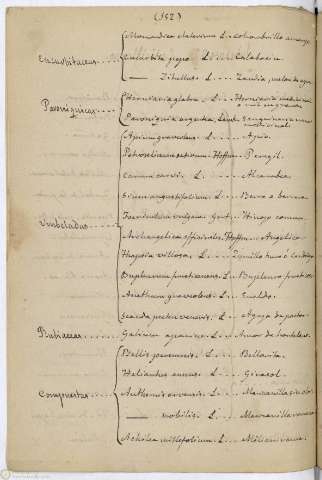 (152)
Momordica elaterium L. Cohombrillo amargo
Cucurbitaceas Cucurbita pepo L. Calabaza
— Citrullus L. Sandia, melon de agua
Herniaria glabra L. Herniaria
Paroniquieas
Paroniquia argentea Lamk Sanguinaria
Apium graveolens L. Apio.
Petroselinum sativum Hoffm. Peregil.
Carum carvi L. Alcarabea
Sium angustifolium L. Berra o berrera
Foeniculum vulgare Gert. Hinojo comun.
Umbeladas Archangelica officinalis Hoffm. Angelica.
Thapsia villosa L. Zumillo
Bupleurum fruticosum L. Bupleuro
Anethum graveolens L. Eneldo.
Scandix pecten veneris L. Aguja de pastor.
Rubiaceas Galium aparine L. Amor de hortelano
Bellis perennis L. Bellorita.
Helianthus annuus L. Girasol.
Compuestas Anthemis arvensis L. Manzanilla
— nobilis L. Manzanilla romana
Achilea millefolium L. Milenrama.